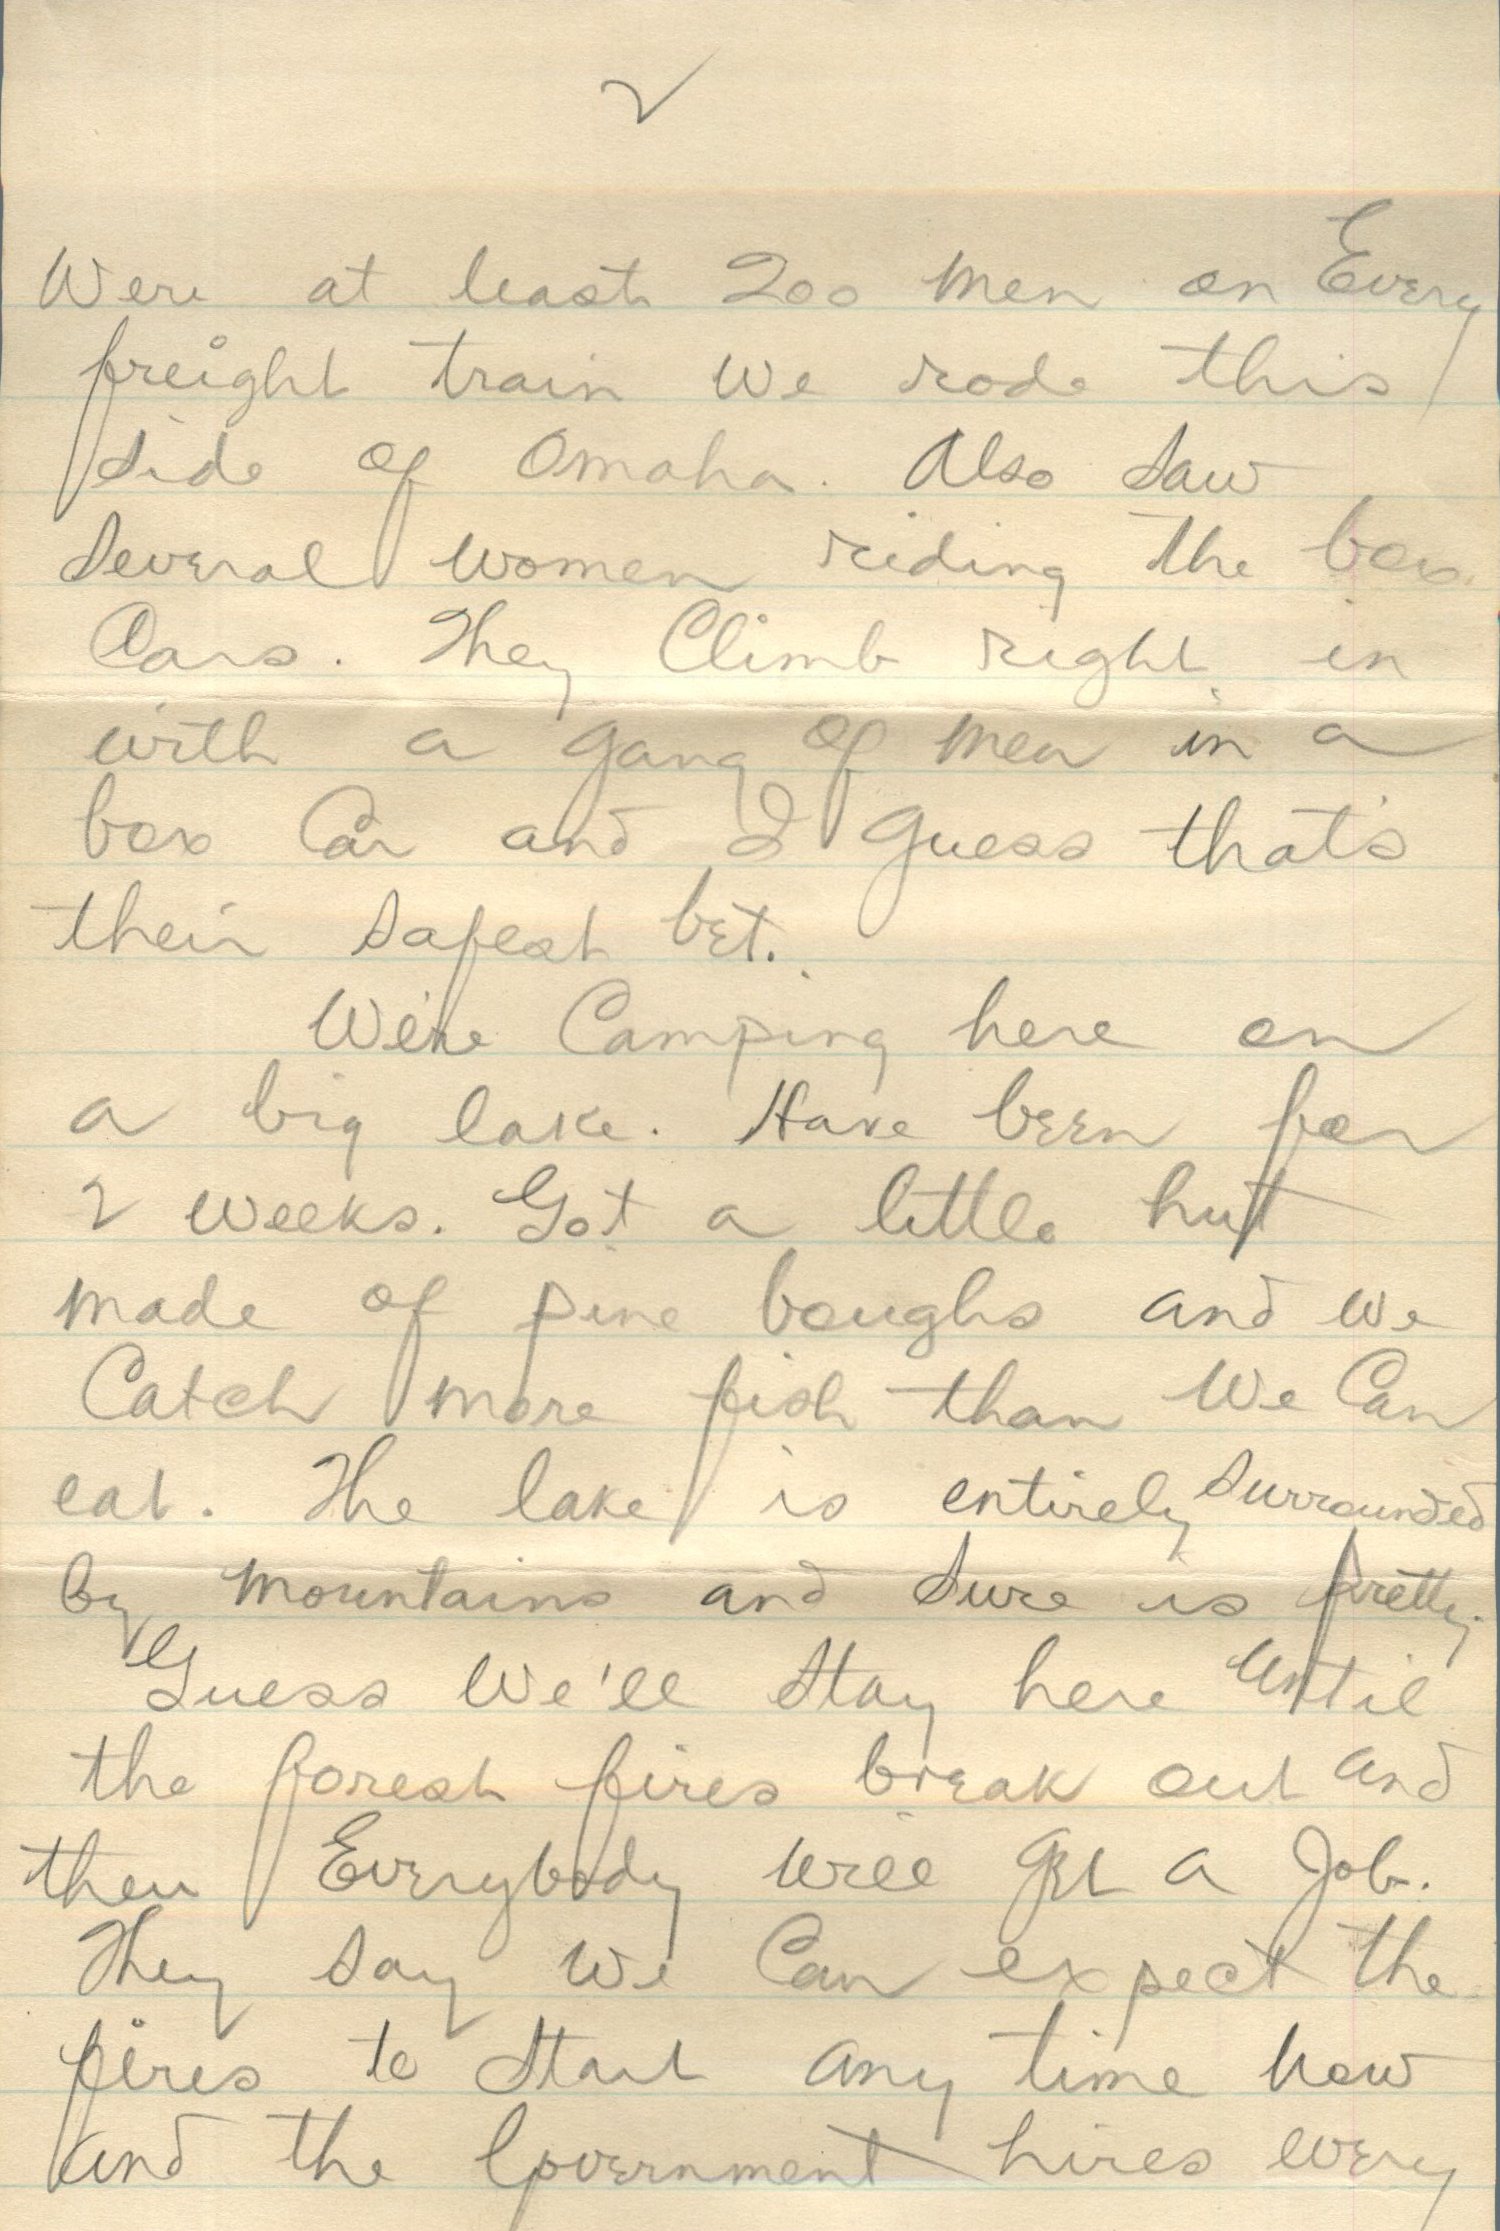 2
Were at least 200 men on Every
freight train we rode this
side of Omaha. Also saw
several women riding the box
Cars. They Climb right in
with a gang of men in a
box Car and I guess that's
their safest bet.
We're Camping here on
a big lake. Have been for
2 weeks. Got a little hut
made of pine boughs and we
Catch more fish than we Can
eat. The lake is entirely surrounded
by mountains and sure is pretty.
Guess we'll stay here until
the forest fires break out and
then Everybody will get a Job.
They say we Can expect the
fires to start any time now
and the Government hires every